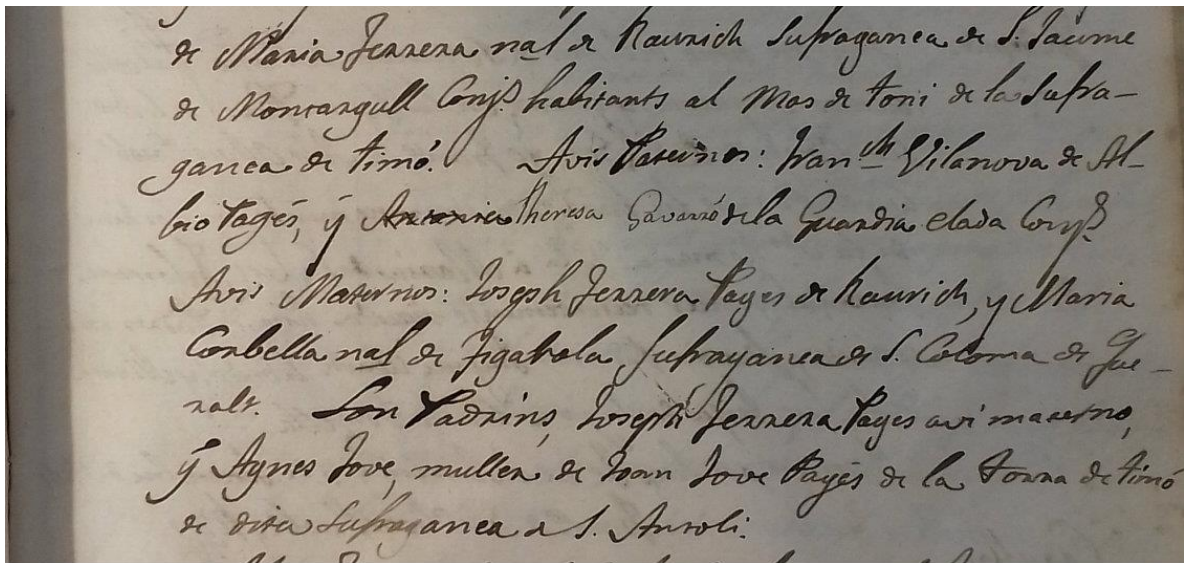 de Maria Ferrera nal de Raurich Sufraganea de S. Jaume
de Montargull Conjs habitants al Mas de toni de la Sufra-
ganea de timó. Avis Paternos: Franch Vilanova de Al-
bio Pagés, ÿ Antonia Theresa Gavarró de la Guardia elada Conjs
Avis Maternos: Joseph Ferrera Pages de Raurich, y Maria
Corbella nal de Figarola Sufraganea de S. Coloma de Que-
ralt. Son Padrins, Joseph Ferrera Pages avi materno,
ÿ Agnes Jove, muller de Joan Jove Pagés de la Torra de timó
de dita Sufraganea de S. Antoli.